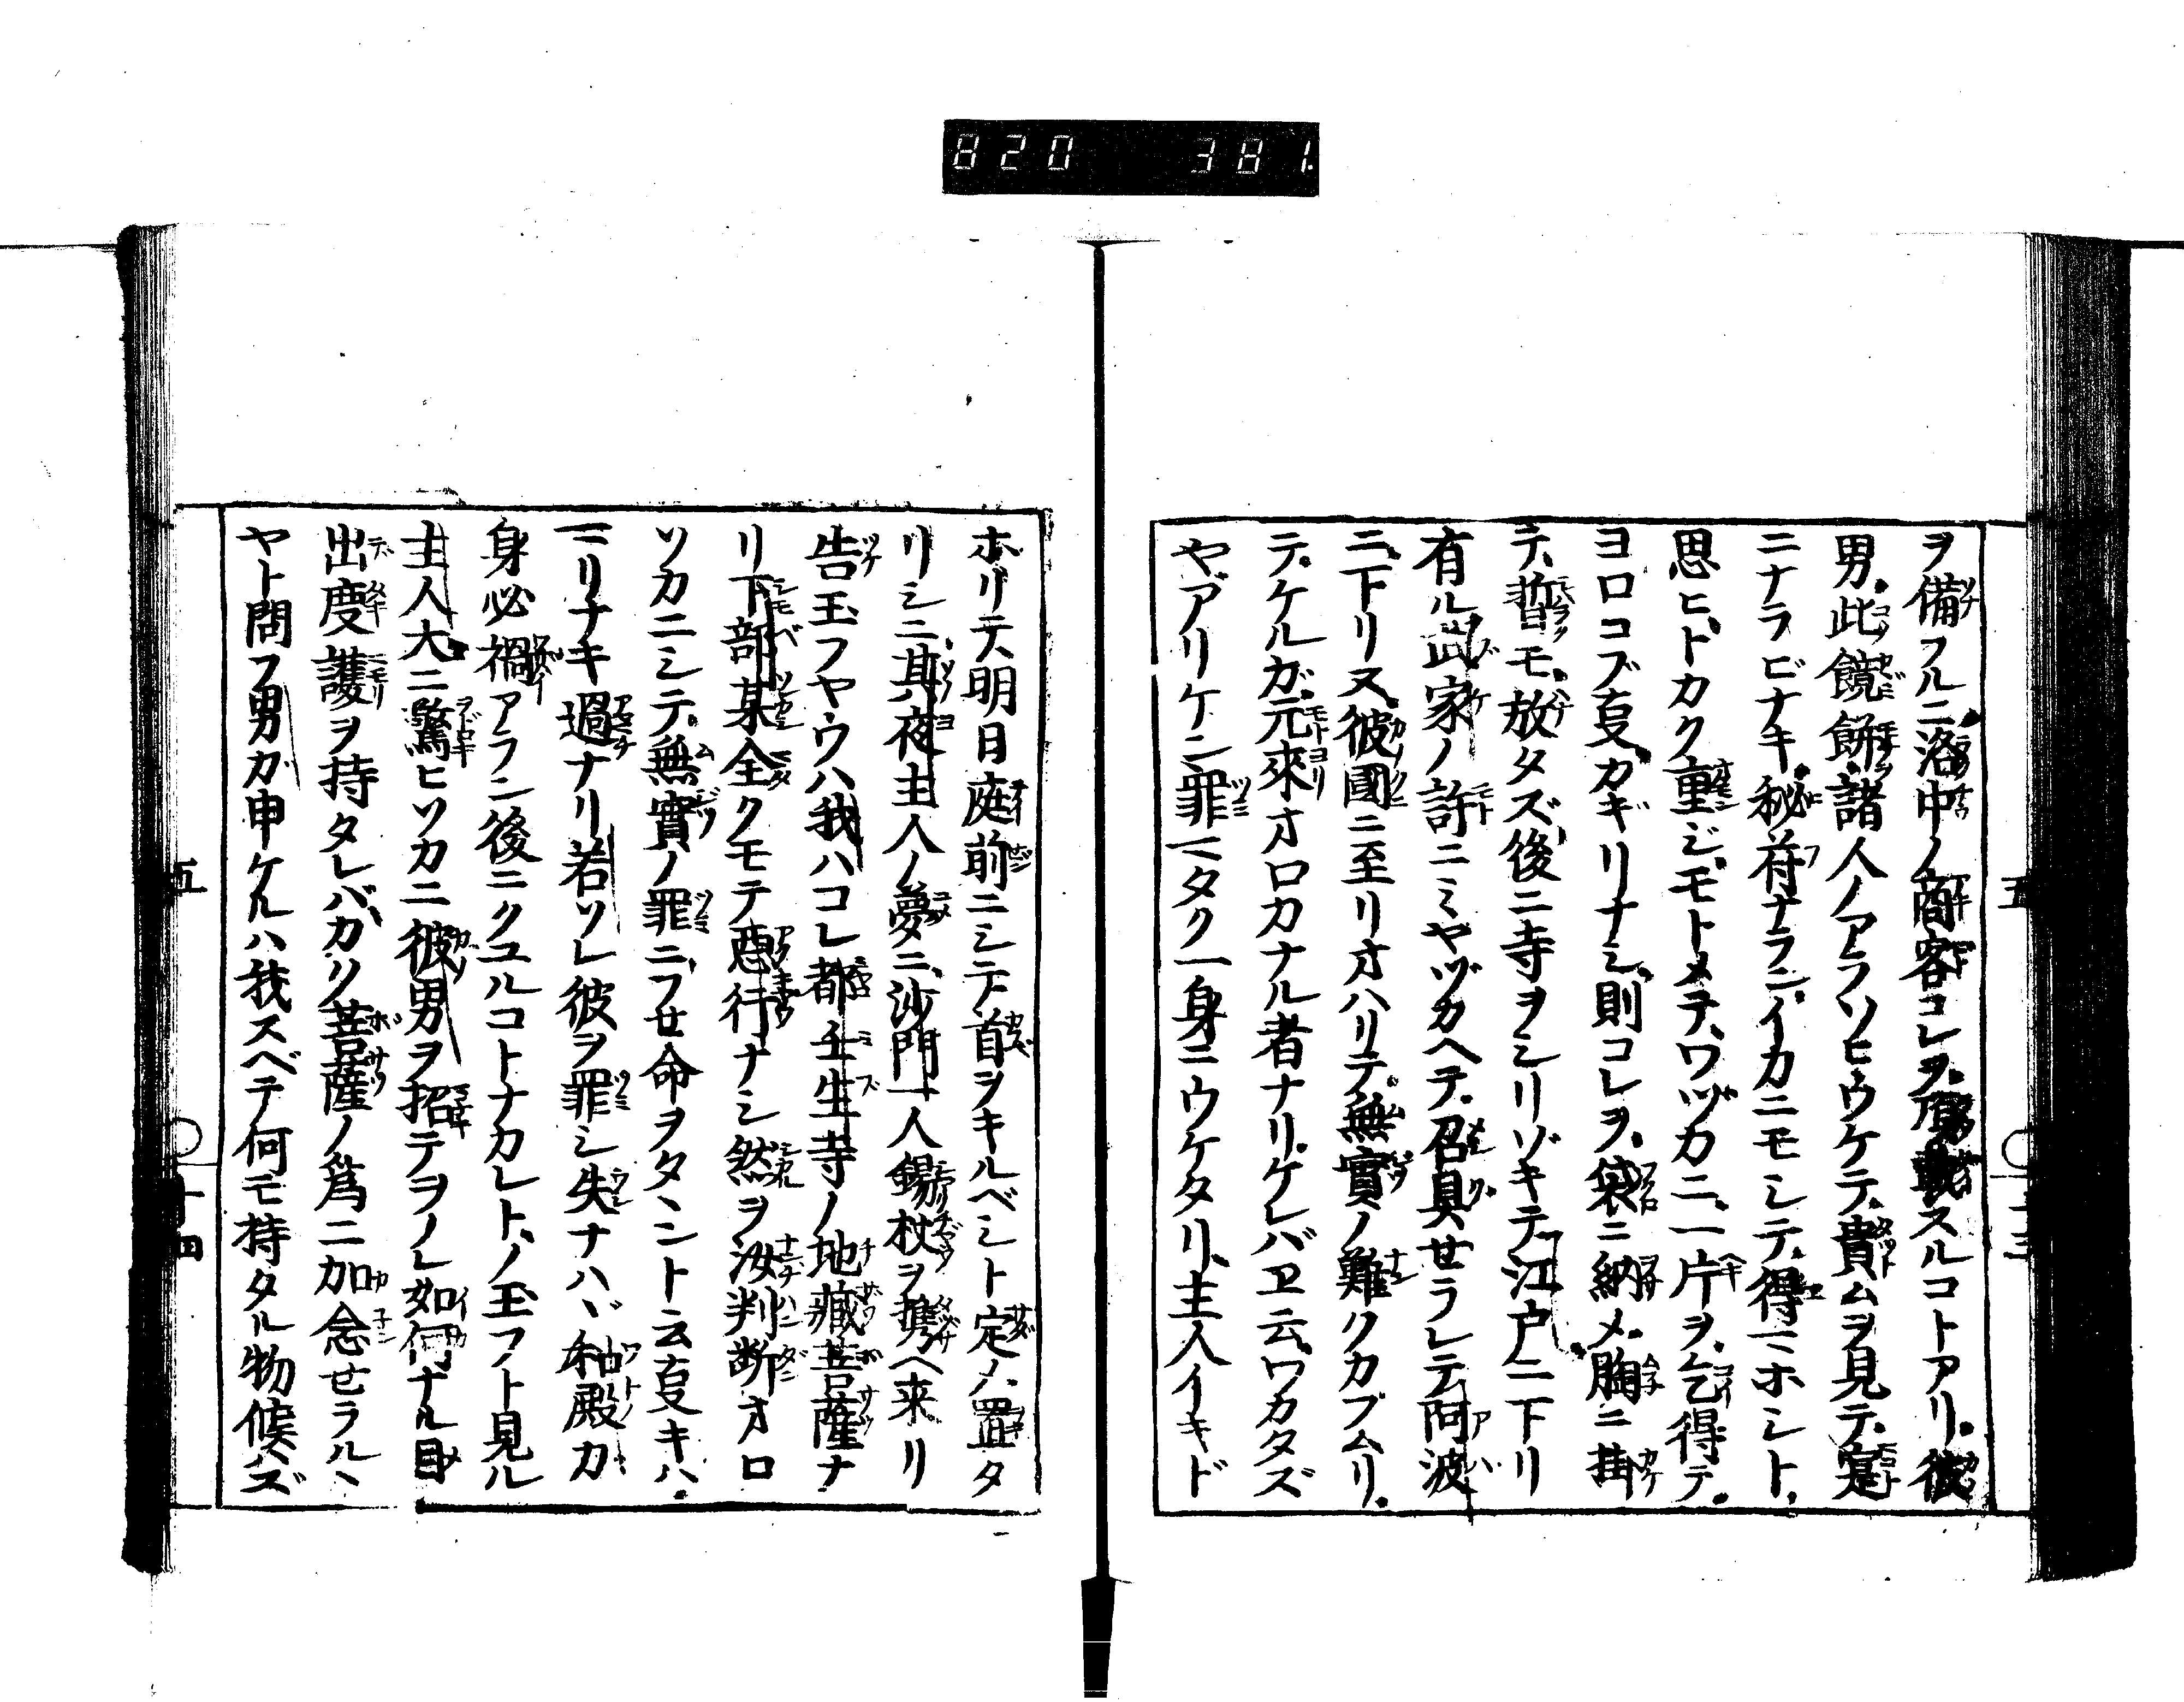 820 381.
ヲ備フルニ。洛中ノ商客コレヲ。頂戴スルコトアリ。彼
男。此ノ鏡餅。諸人ノアラソヒウケテ。貴ムヲ見テ。寔
ニナラビナキ。秘符ナラン。イカニモシテ。得マホシト。
思ヒ、トカク重ジ、モトメテ、ワヅカニ、一片ヲ。乞得テ。
ヨロコブ叓カギリナシ、則コレヲ。袋ニ納メ。胸ニ掛
テ、暫モ。放タズ後ニ寺ヲシリゾキテ江戸ニ下リ
有ル武家ノ許ニミヤヅカヘテ。召具せラレテ阿波
ニ、下リヌ、彼國ニ至リオハリテ。無實ノ難クカブムリ。
テ。ケルガ。元來オロカナル者ナリ。ケレバ云。ワカタズ
ヤアリケン罪マタク一身ニウケタリ、主人イキド
五
十三
ホリテ明日庭前ニシテ首ヲキルベシト定メ、置タ
リシニ、其夜主人ノ夢ニ、沙門一人錫杖ヲ携ヘ来リ
告玉フヤウハ我ハコレ都壬生寺ノ地藏菩薩ナ
リ下部某全クモテ惡行ナシ然ヲ汝判断オロ
ソカニシテ。無實ノ罪ニ、フせ命ヲタヽントス叓キハ。
マリナキ過ナリ若ソレ彼ヲ罪シ失ナハヾ和殿カ
身必禍アラン後ニクユルコトナカレト、ノ玉フト見ル
主人大ニ驚ヒソカニ彼男ヲ招テヲノレ如何ナル目
出度護ヲ持タレバ、カク菩薩ノ爲ニ加念せラルヽ
ヤト問フ男カ申ケルハ我スベテ何モ持タル物候ハズ
五
十四